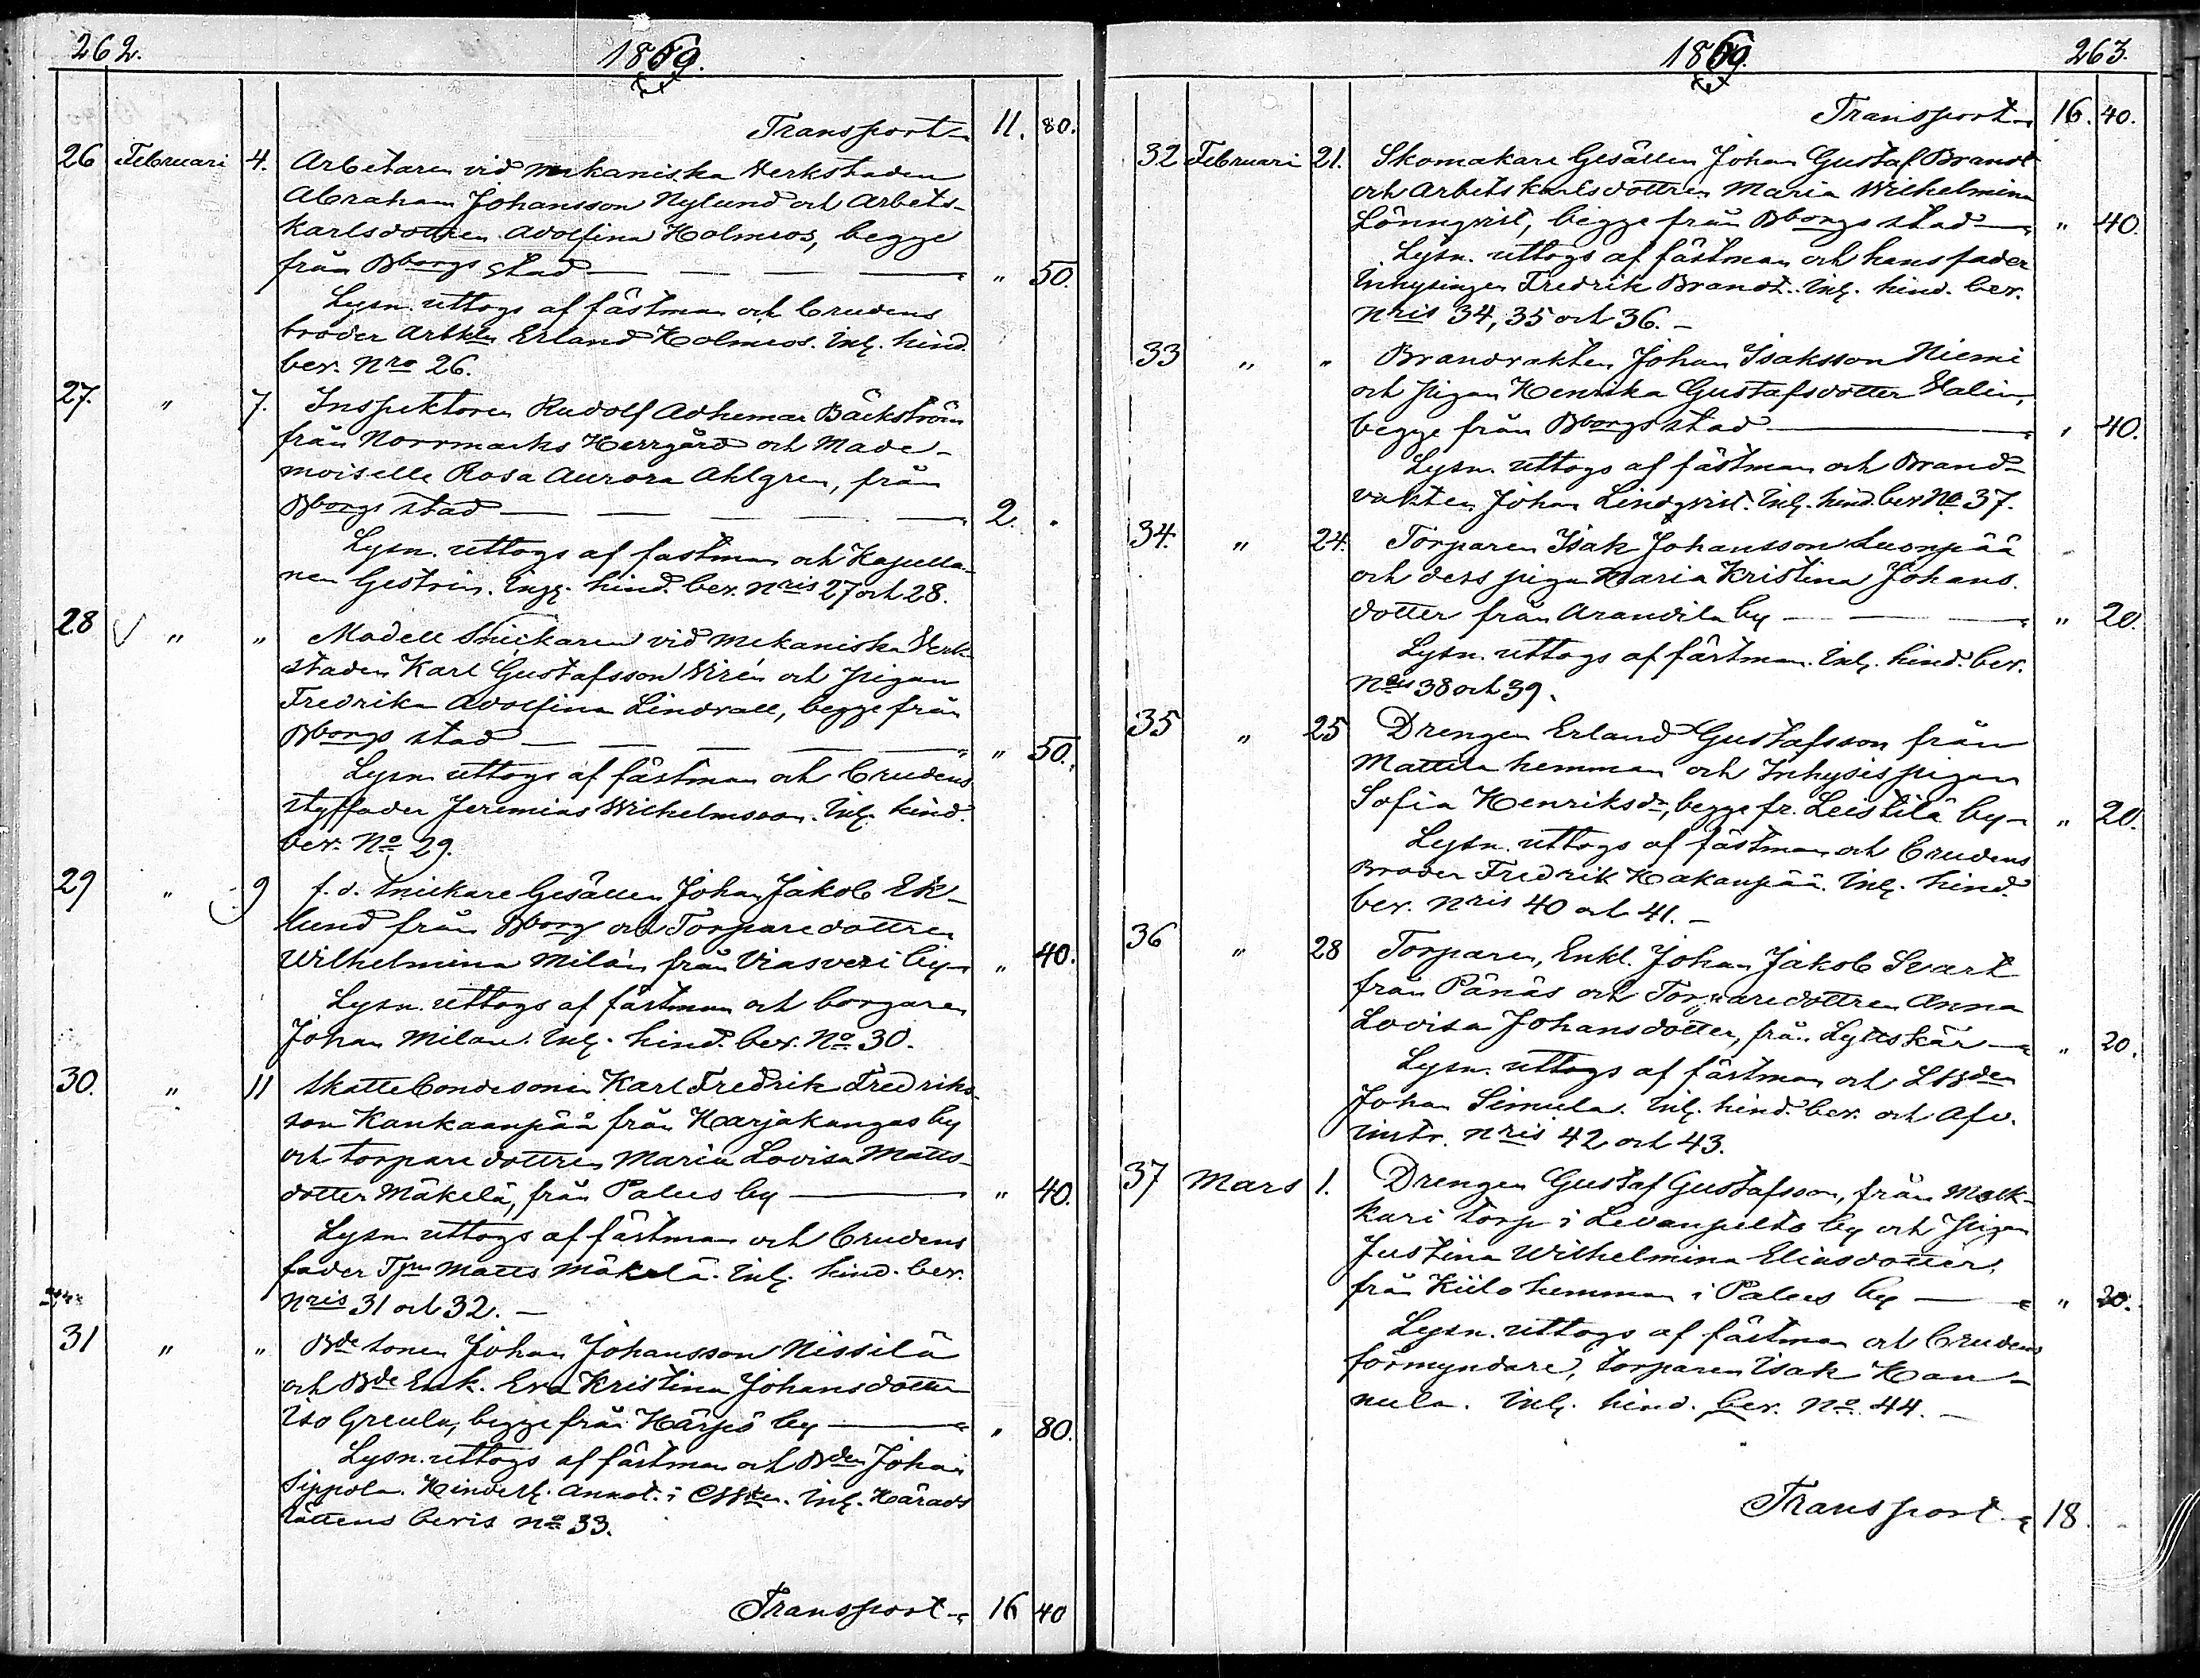 262. 1869.
Transport 11. 80.
26 Februari 4. Arbetaren vid mekaniska Verkstaden
Abraham Johansson Nylund och Arbets-
karlsdottren Adolfina Holmros, begge
från Bborgs stad — — — " 50.
Lysn. uttogs af fästman och brudens
broder Arbkln Erland Holmros. Inl. hind.
bev. Nro 26.
27. " 7. Inspektoren Rudolf Adhemar Bäckström
från Norrmarks Herrgård och Made-
moiselle Rosa Aurora Ahlgren, från
Bborgs stad — — — — 2. "
Lysn. uttogs af fastman och Kapella-
nen Gestrin. Ing. hind. bev. Nris 27 och 28.
28 " " Modell Snickaren vid Mekaniska Verk-
staden Karl Gustafsson Wirén och pigan
Fredrika Adolfina Lindvall, begge från
Bborgs stad — — — — " 50.
Lysn uttogs af fästman och brudens
styffader Jeremias Wilhelmsson. Inl. hind.
bev. No 29.
29 " 9 f.d. Snickare Gesällen Johan Jakob Ek-
lund från Bborg och Torparedottren
Wilhelmina Milán från Viasveri by " 40.
Lysn. uttogs af fästman och borgaren
Johan Milan. Inl. hind. bev. No 30.
30. " 11 Skattebondesonen Karl Fredrik Fredriks-
son Kankaanpää från Harjakangas by
och torparedottren Maria Lovisa Matts-
dotter Mäkelä, från Palus by — " 40.
Lysn uttogs af fästman och brudens
fader Tpn Matts Mäkelä. Inl. hind. bev.
Nris 31 och 32. —
31 " " Bde sonen Johan Johansson Nissilä
och Bde Enk. Eva Kristina Johansdotter
Iso Greula, begge från Härpö by — " 80.
Lysn. uttogs af fästman och Bden Johan
Sippola. Hinderl. Annot. i Inl. Härads
rättens bevis No 33.
Transport 16 40
1869. 263.
Transport 16. 40.
32 Februari 21. Skomakare Gesällen Johan Gustaf Brandt
och Arbetskarlsdottren Maria Wilhelmina
Lönnqvist, begge från Bborgs stad — " 40.
Lysn. uttogs af fästman och hans fader
Inhysingen Fredrik Brandt. Inl. hind. bev.
Nris 34, 35 och 36. —
33 " " Brandvakten Johan Isaksson Niemi
och pigan Henrika Gustafsdotter Valin,
begge från Bborgs stad — " 40.
Lysn. uttogs af fästman och Brand-
vakten Johan Lindqvist. Inl. hind. bev No 37.
34. " 24. Torparen Isak Johansson Luonpää
och dess piga Maria Kristina Johans-
dotter från Aravila by — — " 20.
Lysn. uttogs af fästman. Inl. hind. bev.
Nris 38 och 39.
35 " 25 Drengen Erland Gustafsson från
Mattila hemman och Inhysispigan
Sofia Henriksdr, begge fr. Leistilä by — " 20.
Lysn. uttogs af fästman och brudens
Broder Fredrik Hakanpää. Inl. hind.
bev. Nris 40 och 41. —
36 " 28 Torparen, Enkl. Johan Jakob Svart
från Pånäs och Torparedottren Anna
Lovisa Johansdotter, från Lyttskär — " 20.
Lysn. uttogs af fästman och
Johan Simula. Inl. hind. bev. och Afv.
Nris 42 och 43.
37 Mars 1. Drengen Gustaf Gustafsson, från Mälk-
kari torp i Levanpelto by och pigan
Justina Wilhelmina Eliasdotter,
från Kiilo hemman i Palus by — " 20.
Lysn. uttogs af fästman och brudens
förmyndare, torparen Isak Han-
nula. Inl. hind. bev. No 44. —
Transport 18. "